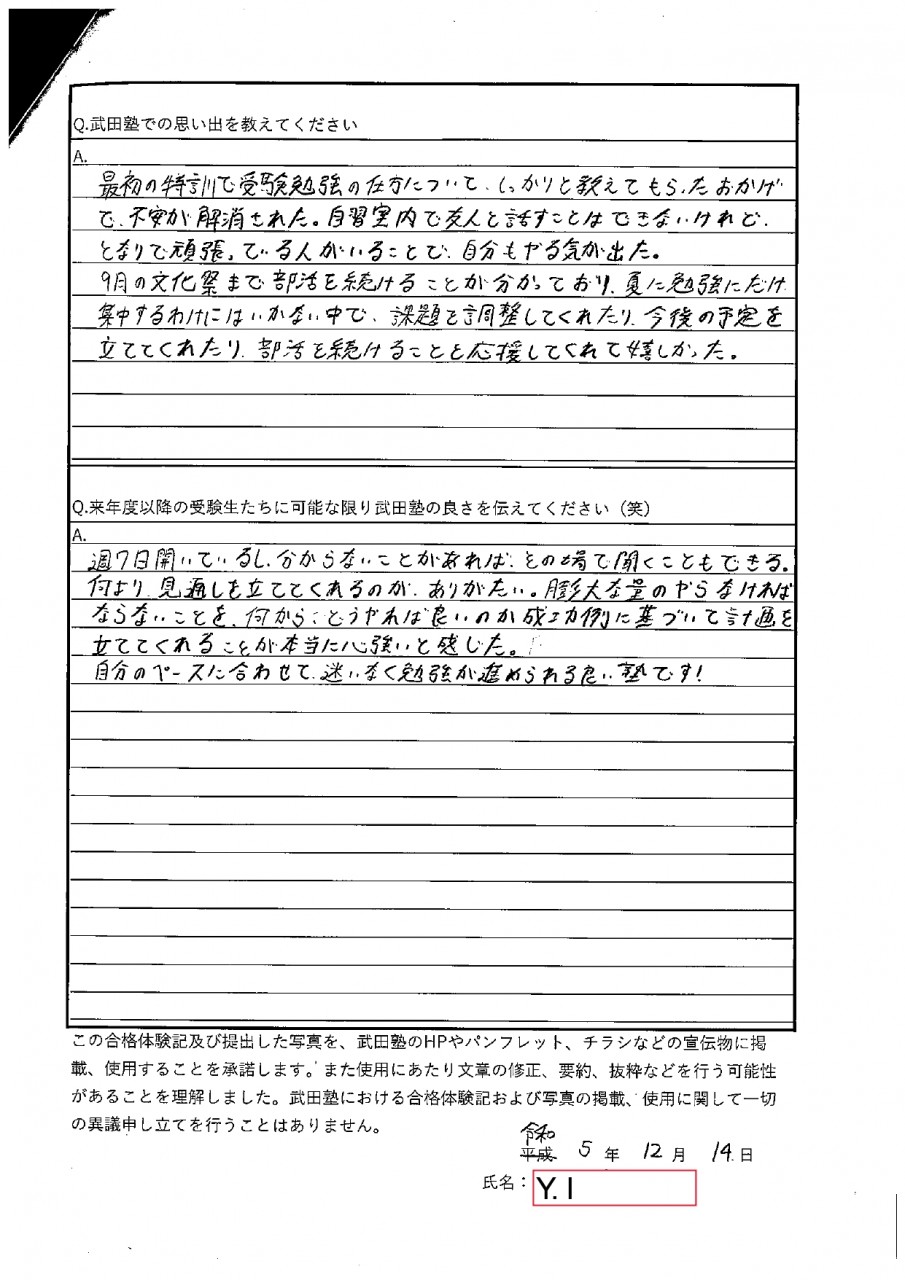 Q.武田塾での思い出を教えてください
A.
最初の特訓で受験勉強の仕方について、しっかりと教えてもらったおかげ
で、不安が解消された。自習室内で友人と話すことはできないけれど、
となりで頑張っている人がいることで、自分もやる気が出た。
9月の文化祭まで部活を続けることが分かっており、夏に勉強にだけ
集中するわけにはいかない中で、課題を調整してくれたり、今後の予定を
立ててくれたり、部活を続けることを応援してくれて嬉しかった。
Q.来年度以降の受験生たちに可能な限り武田塾の良さを伝えてください（笑）
A.
週7日開いているし、分からないことがあれば、その場で聞くこともできる。
何より、見通しを立ててくれるのが、ありがたい。膨大な量のやらなければ
ならないことを、何から、どうやれば良いのか成功例に基づいて計画を
立ててくれることが本当に心強いと感じた。
自分のペースに合わせて、迷いなく勉強が進められる良い塾です!
この合格体験記及び提出した写真を、武田塾のHPやパンフレット、チラシなどの宣伝物に掲
載、使用することを承諾します。また使用にあたり文章の修正、要約、抜粋などを行う可能性
があることを理解しました。武田塾における合格体験記および写真の掲載、使用に関して一切
の異議申し立てを行うことはありません。
令和
平成 5 年 12 月 14 日
氏名：Y. I